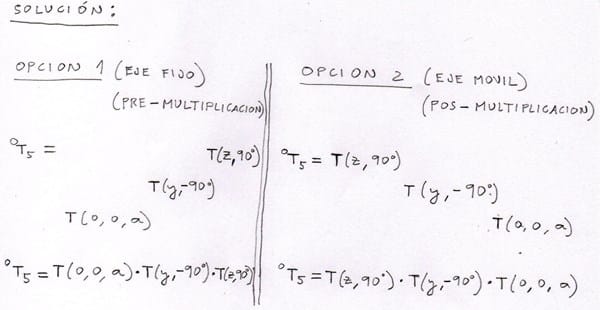 SOLUCIÓN:
OPCION 1 (EJE FIJO)
(PRE-MULTIPLICACION)
⁰T₅ = T(z,90°)
T(y,-90°)
T(0,0,a)
⁰T₅ = T(0,0,a)·T(y,-90°)·T(z,90°)
OPCION 2 (EJE MOVIL)
(POS-MULTIPLICACION)
⁰T₅ = T(z,90°)
T(y,-90°)
T(0,0,a)
⁰T₅ = T(z,90°)·T(y,-90°)·T(0,0,a)